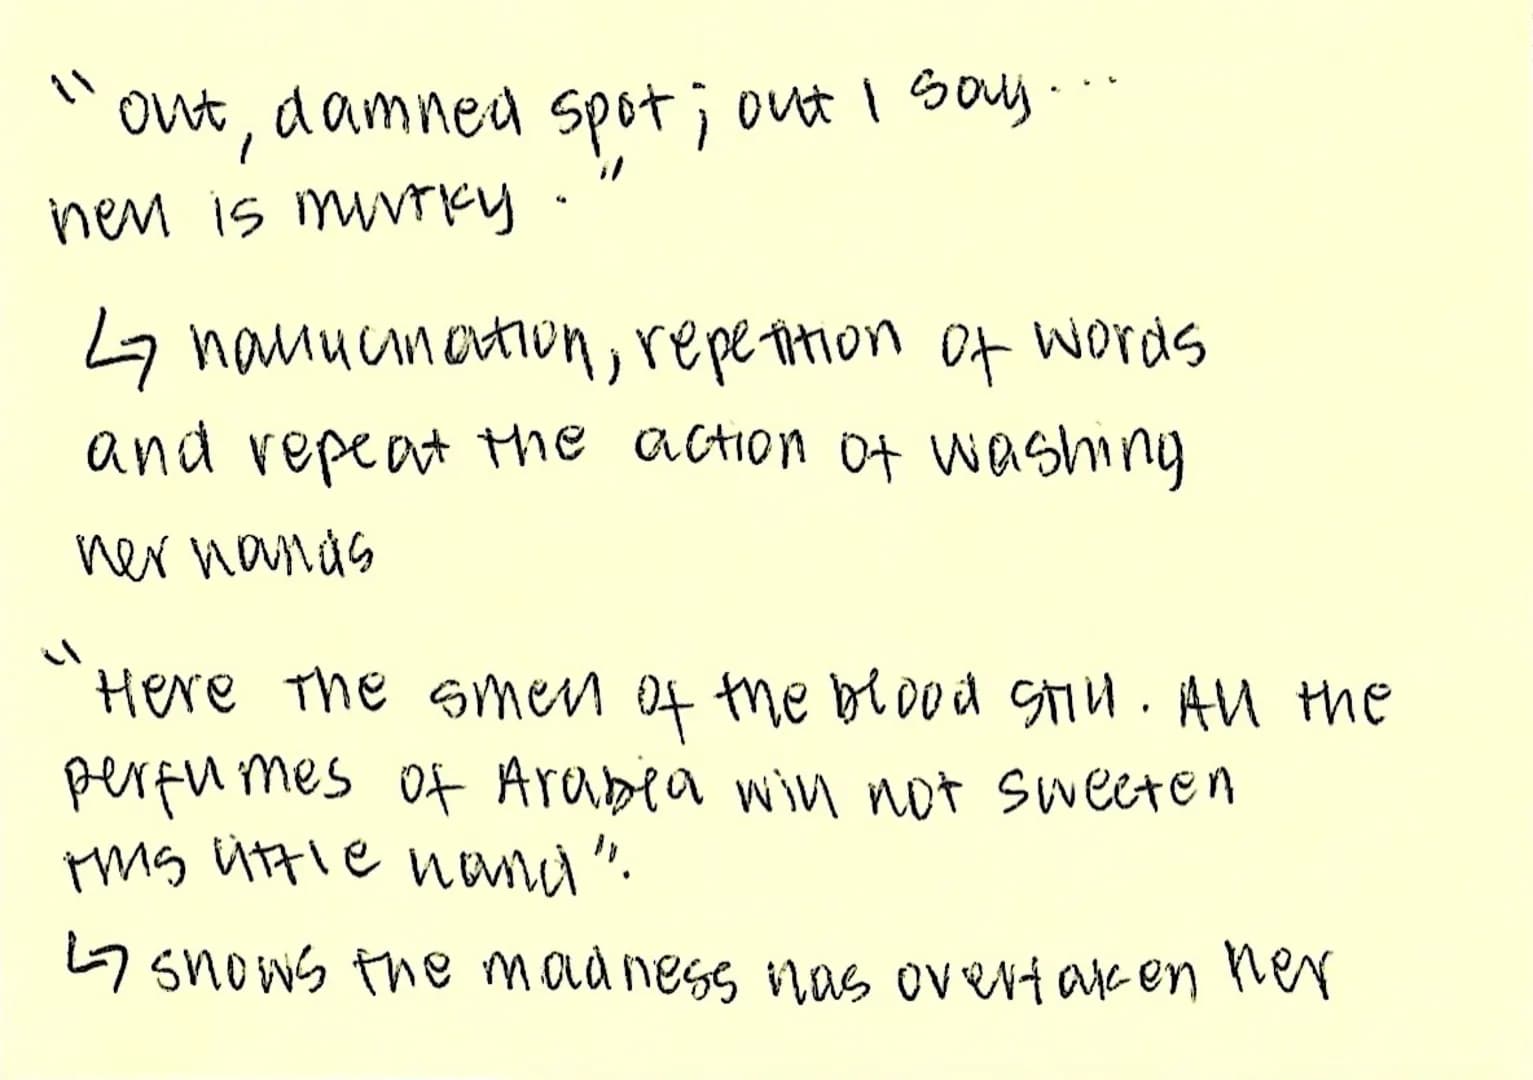 "out, damned spot; out I say...
hell is murky."
↳ hallucination, repetition of words
and repeat the action of washing
her hands
"Here the smell of the blood still. All the
perfumes of Arabia will not sweeten
this little hand".
↳ shows the madness has overtaken her